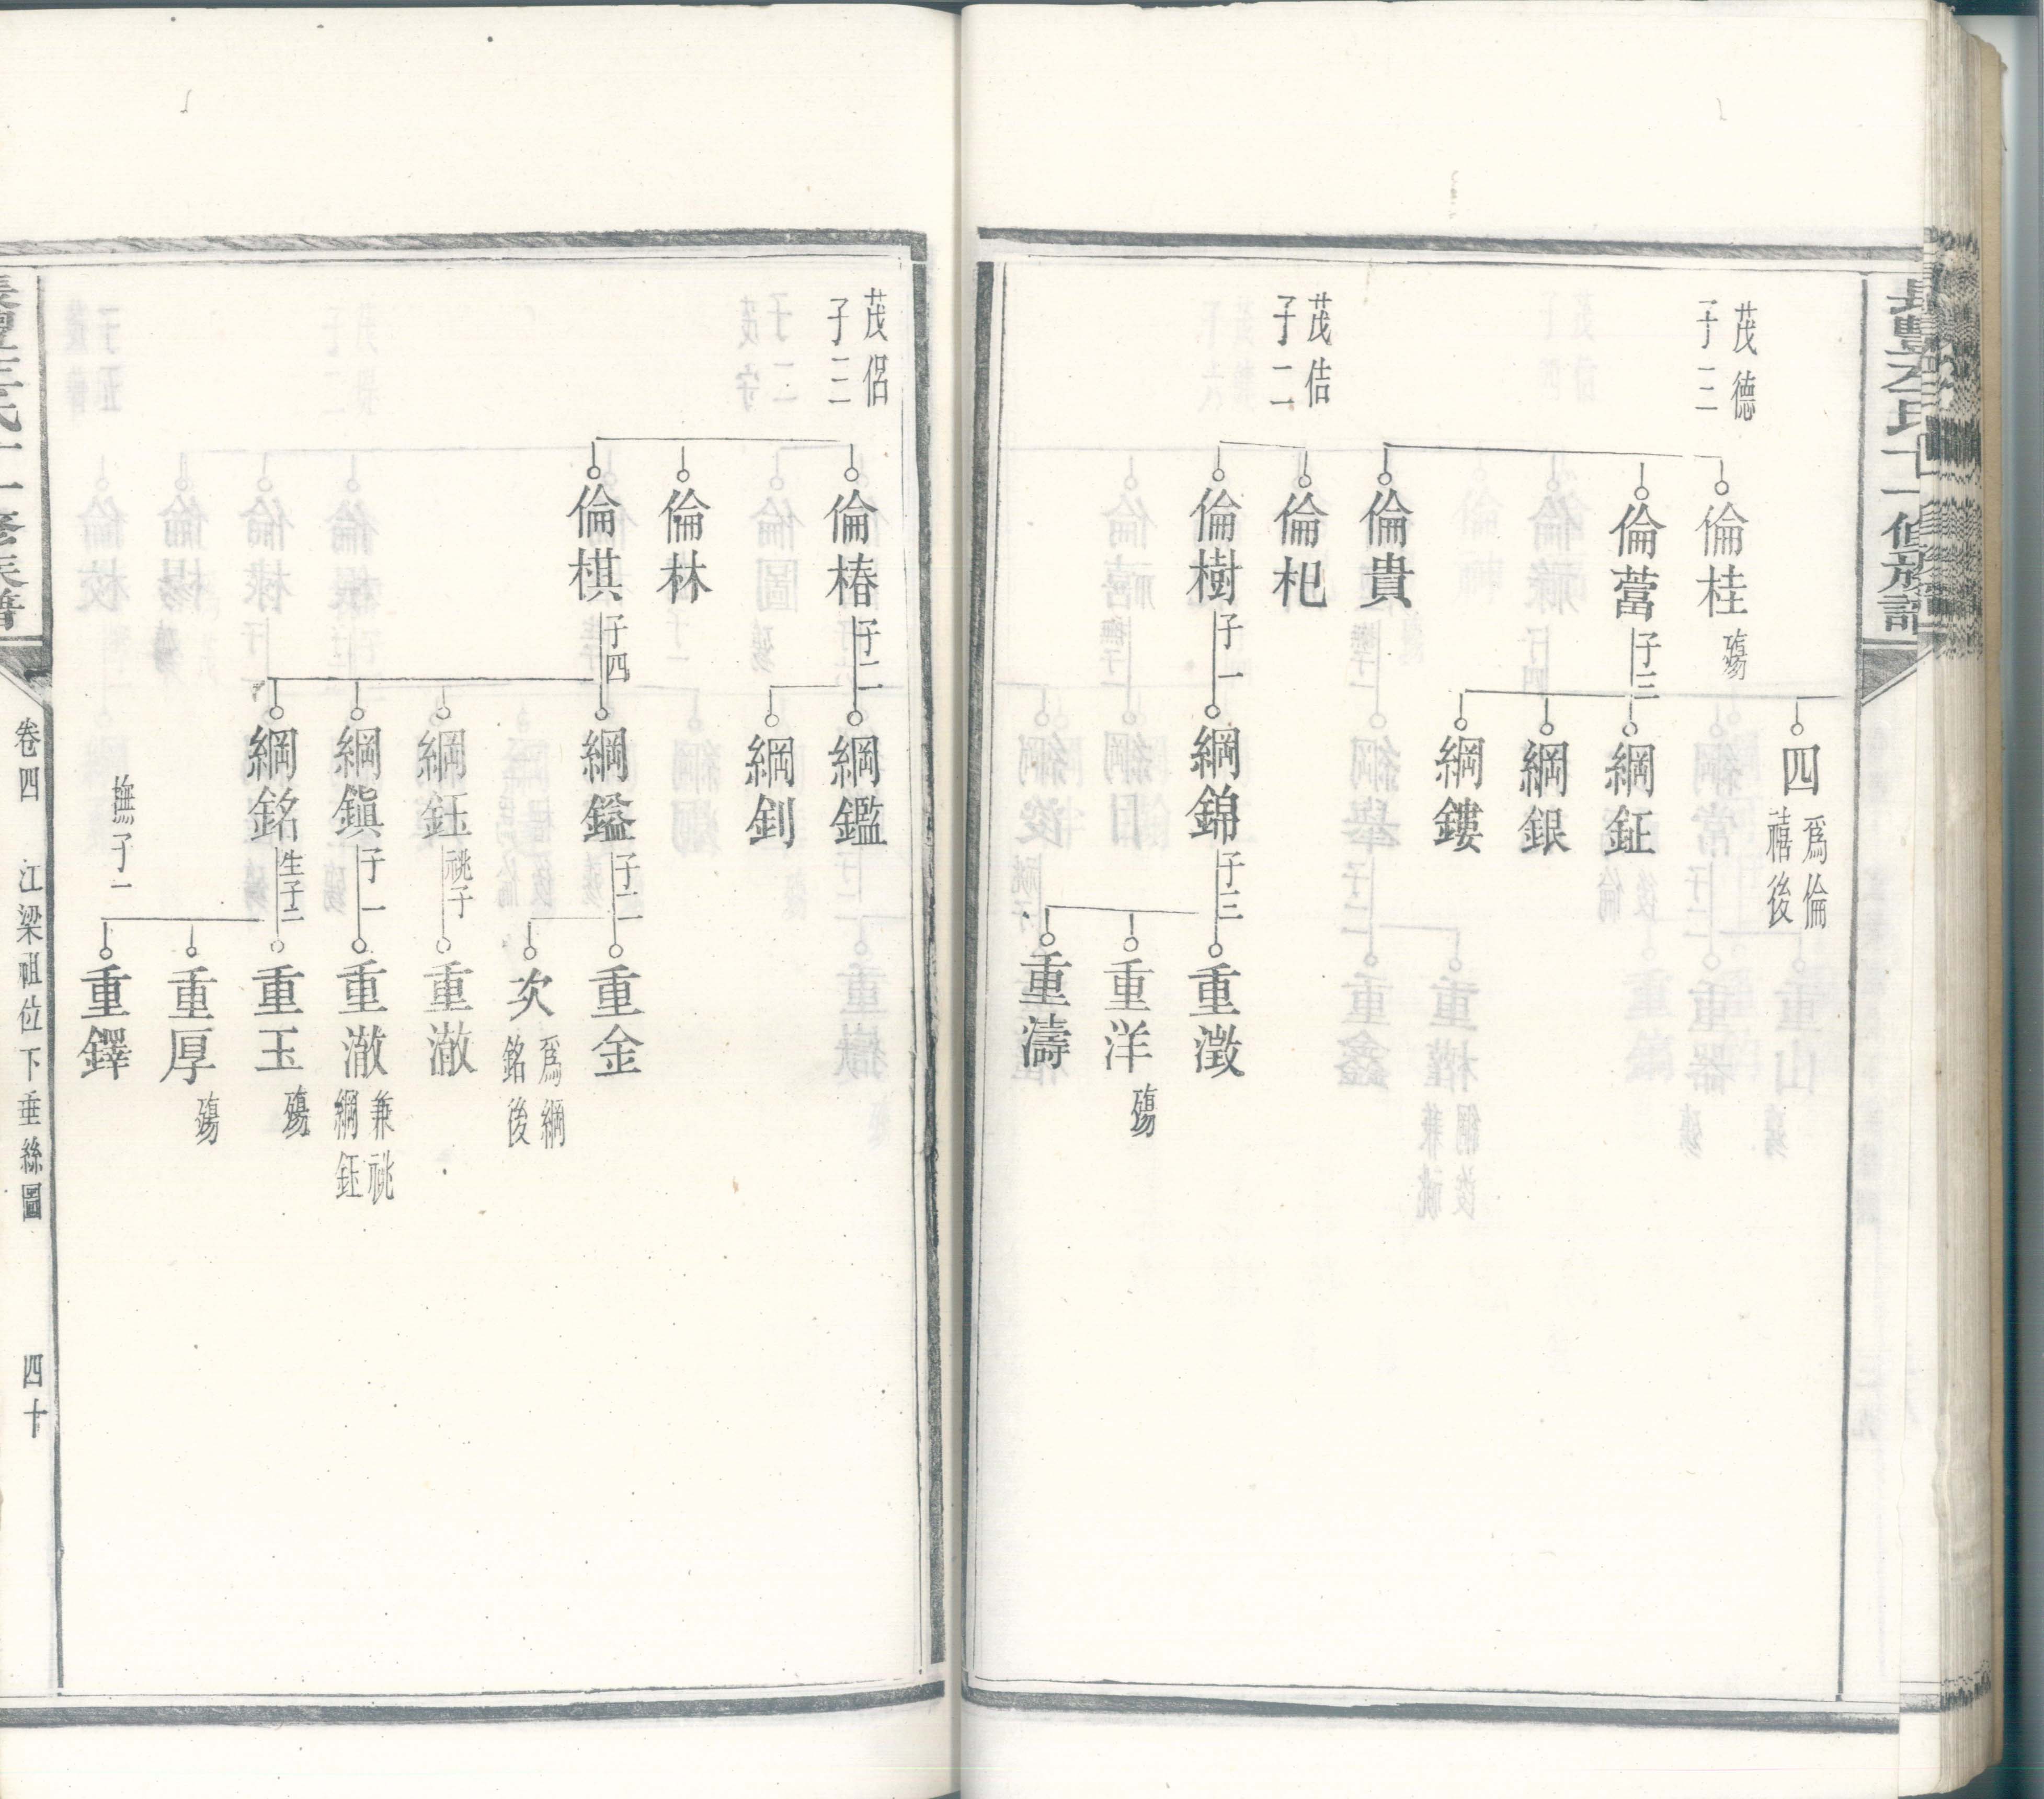 四
爲倫
禧後
茂德
子三
倫桂
殤
倫蒿
子三
綱鉦
綱銀
綱鏤
倫貴
茂佶
子二
倫杞
倫樹
子一
綱錦
子三
重澂
重洋
殤
重濤
茂侶
子三
倫椿
子二
綱鑑
綱釗
倫林
倫棋
子四
綱鎰
子二
重金
次
爲綱
銘後
綱鈺
祧子
重澈
綱鎭
子一
重澈
兼祧
綱鈺
綱銘
生子二
重玉
殤
重厚
殤
撫子一
重鐸
卷四
江梁祖位下垂絲圖
四十